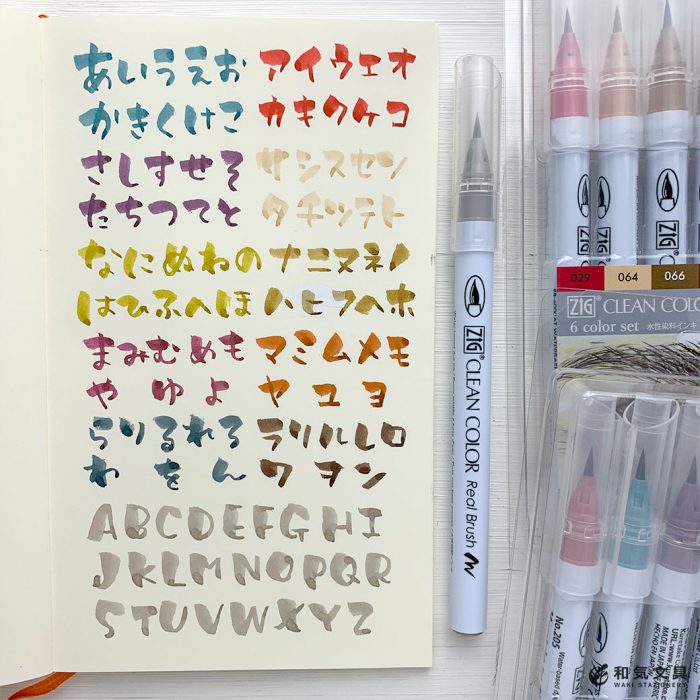 あいうえお アイウエオ
かきくけこ カキクケコ
さしすせそ サシスセソ
たちつてと タチツテト
なにぬねの ナニヌネノ
はひふへほ ハヒフヘホ
まみむめも マミムメモ
や ゆ よ ヤ ユ ヨ
らりるれろ ラリルレロ
わ を ん ワ ヲ ン
ABCDEFGHI
JKLMNOPQR
STUVWXYZ
ZIG CLEAN COLOR Real Brush
ZIG
ZIG
029 064 066
ZIG CLEAN COLO
6 color set 水性染料インキ
No.205
MADE IN JAPAN
和気文具
WAKI STATIONERY